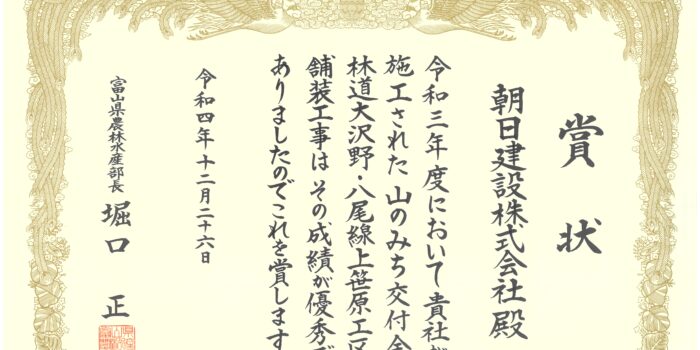 賞状
朝日建設株式会社 殿
令和三年度において貴社が
施工された 山のみち交付金
林道大沢野・八尾線上笹原工区
舗装工事は その成績が優秀で
ありましたのでこれを賞します
令和四年十二月二十六日
富山県農林水産部長 堀口 正